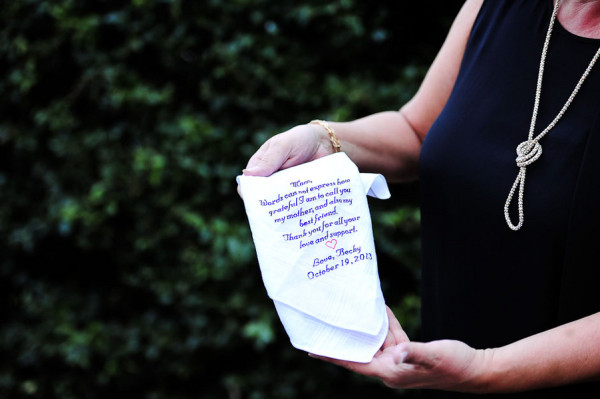 Mom,
Words can not express how
grateful I am to call you
my mother, and also my
best friend.
Thank you for all your
love and support.
Love, Becky
October 19, 2013